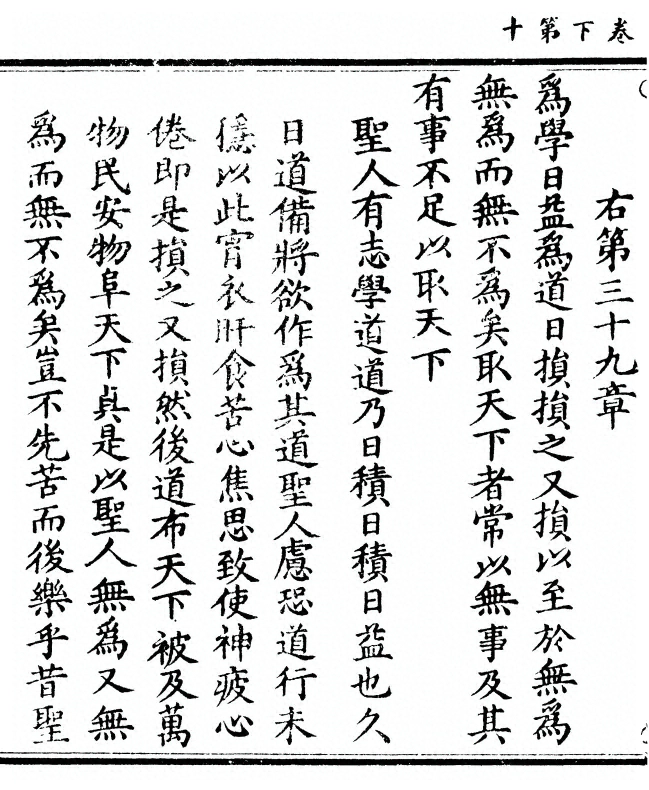 卷下第十
右第三十九章
爲學日益爲道日損損之又損以至於無爲
無爲而無不爲矣取天下者常以無事及其
有事不足以取天下
聖人有志學道道乃日積日積日益也久
日道備將欲作爲其道聖人慮恐道行未
穩以此宵衣旰食苦心焦思致使神疲心
倦即是損之又損然後道布天下被及萬
物民安物阜天下貞是以聖人無爲又無
爲而無不爲矣豈不先苦而後樂乎昔聖